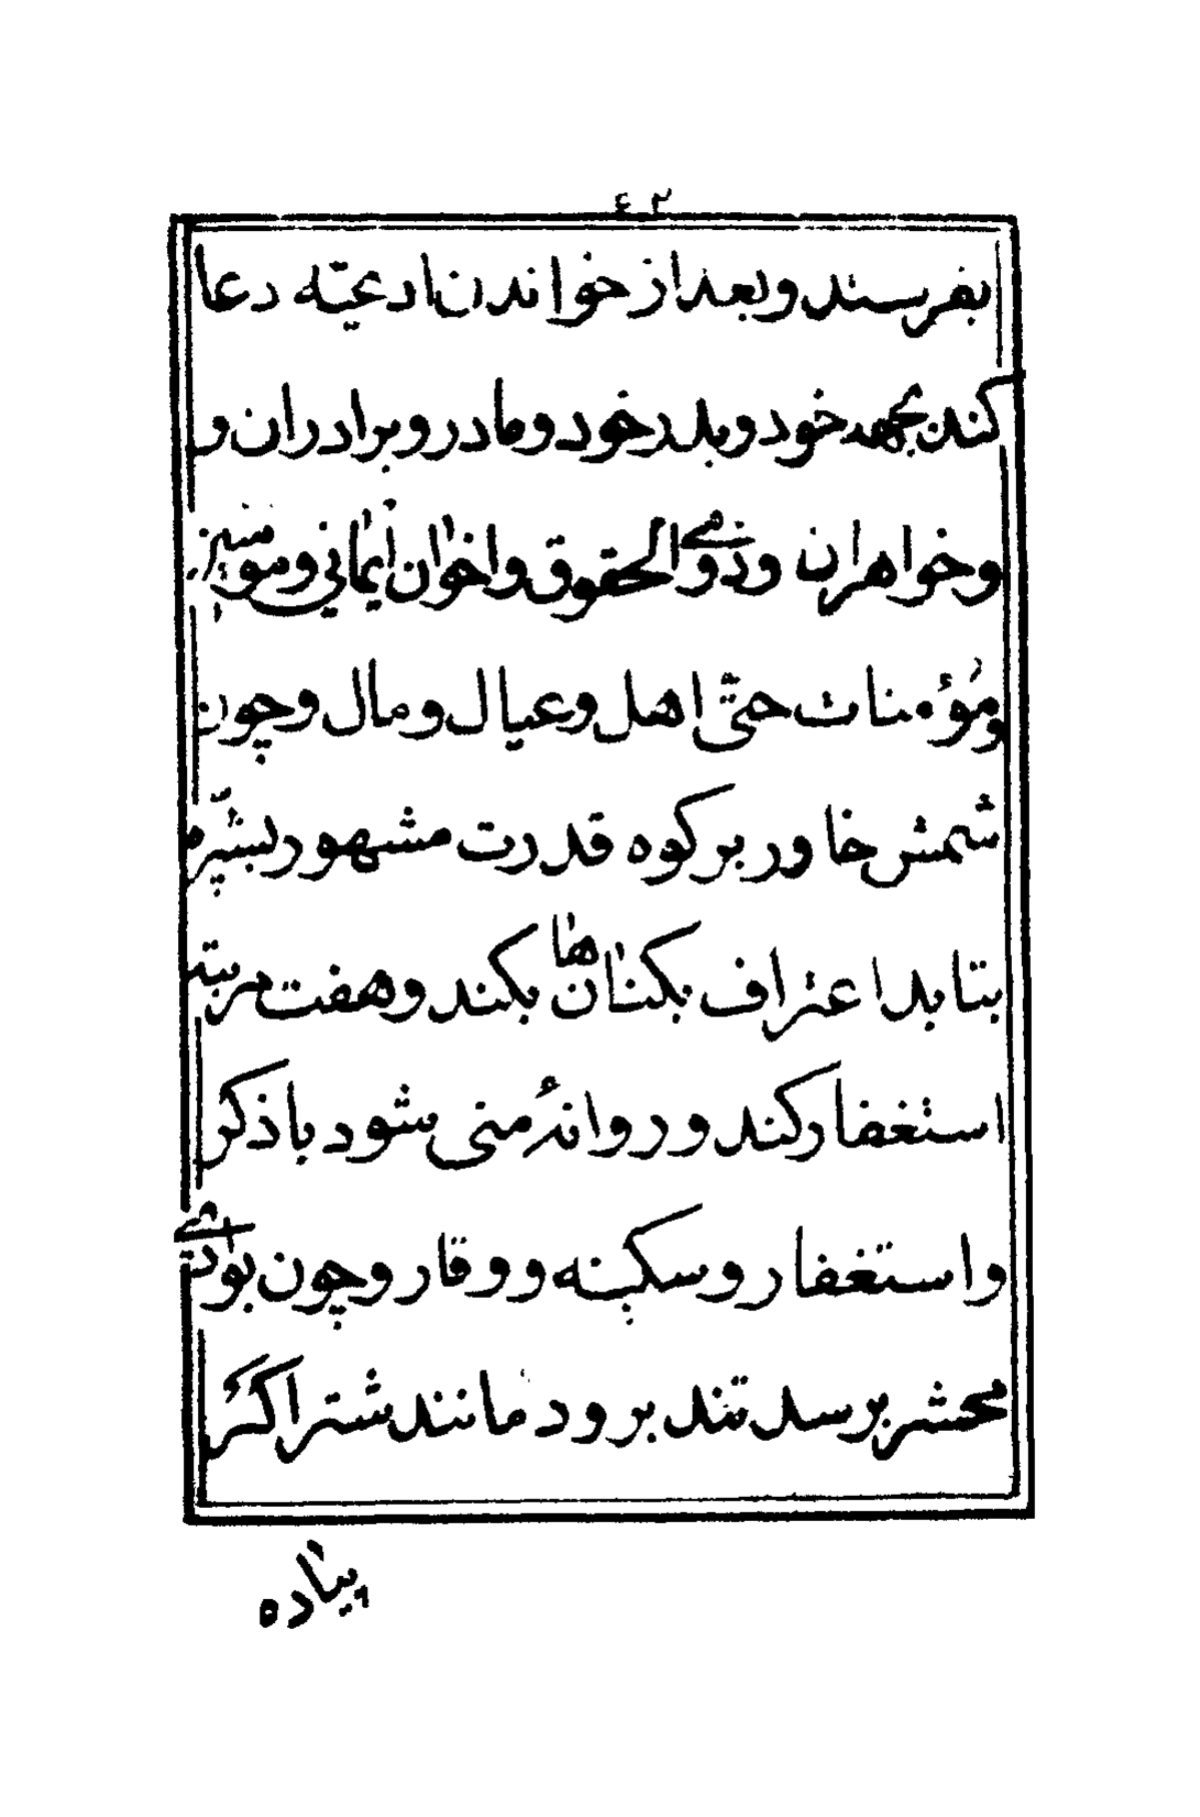 ٤٢
بفرستد و بعد از خواندن ادعیّه دعا
کند بجهة خود و پدر خود و مادر و برادران و
و خواهران و ذوی الحقوق و اخوان ایمانی و مومنین
و مؤمنات حتّی اهل و عیال و مال و چون
شمش خاور بر کوه قدرت مشهور بشپّره
بتابد اعتراف بکناهان بکند و هفت مرتبه
استغفار کند و روانهٔ منی شود با ذکر
و استغفار و سکینه و وقار و چون بوادی
محشر برسد تند برود مانند شتر اگر
پیاده